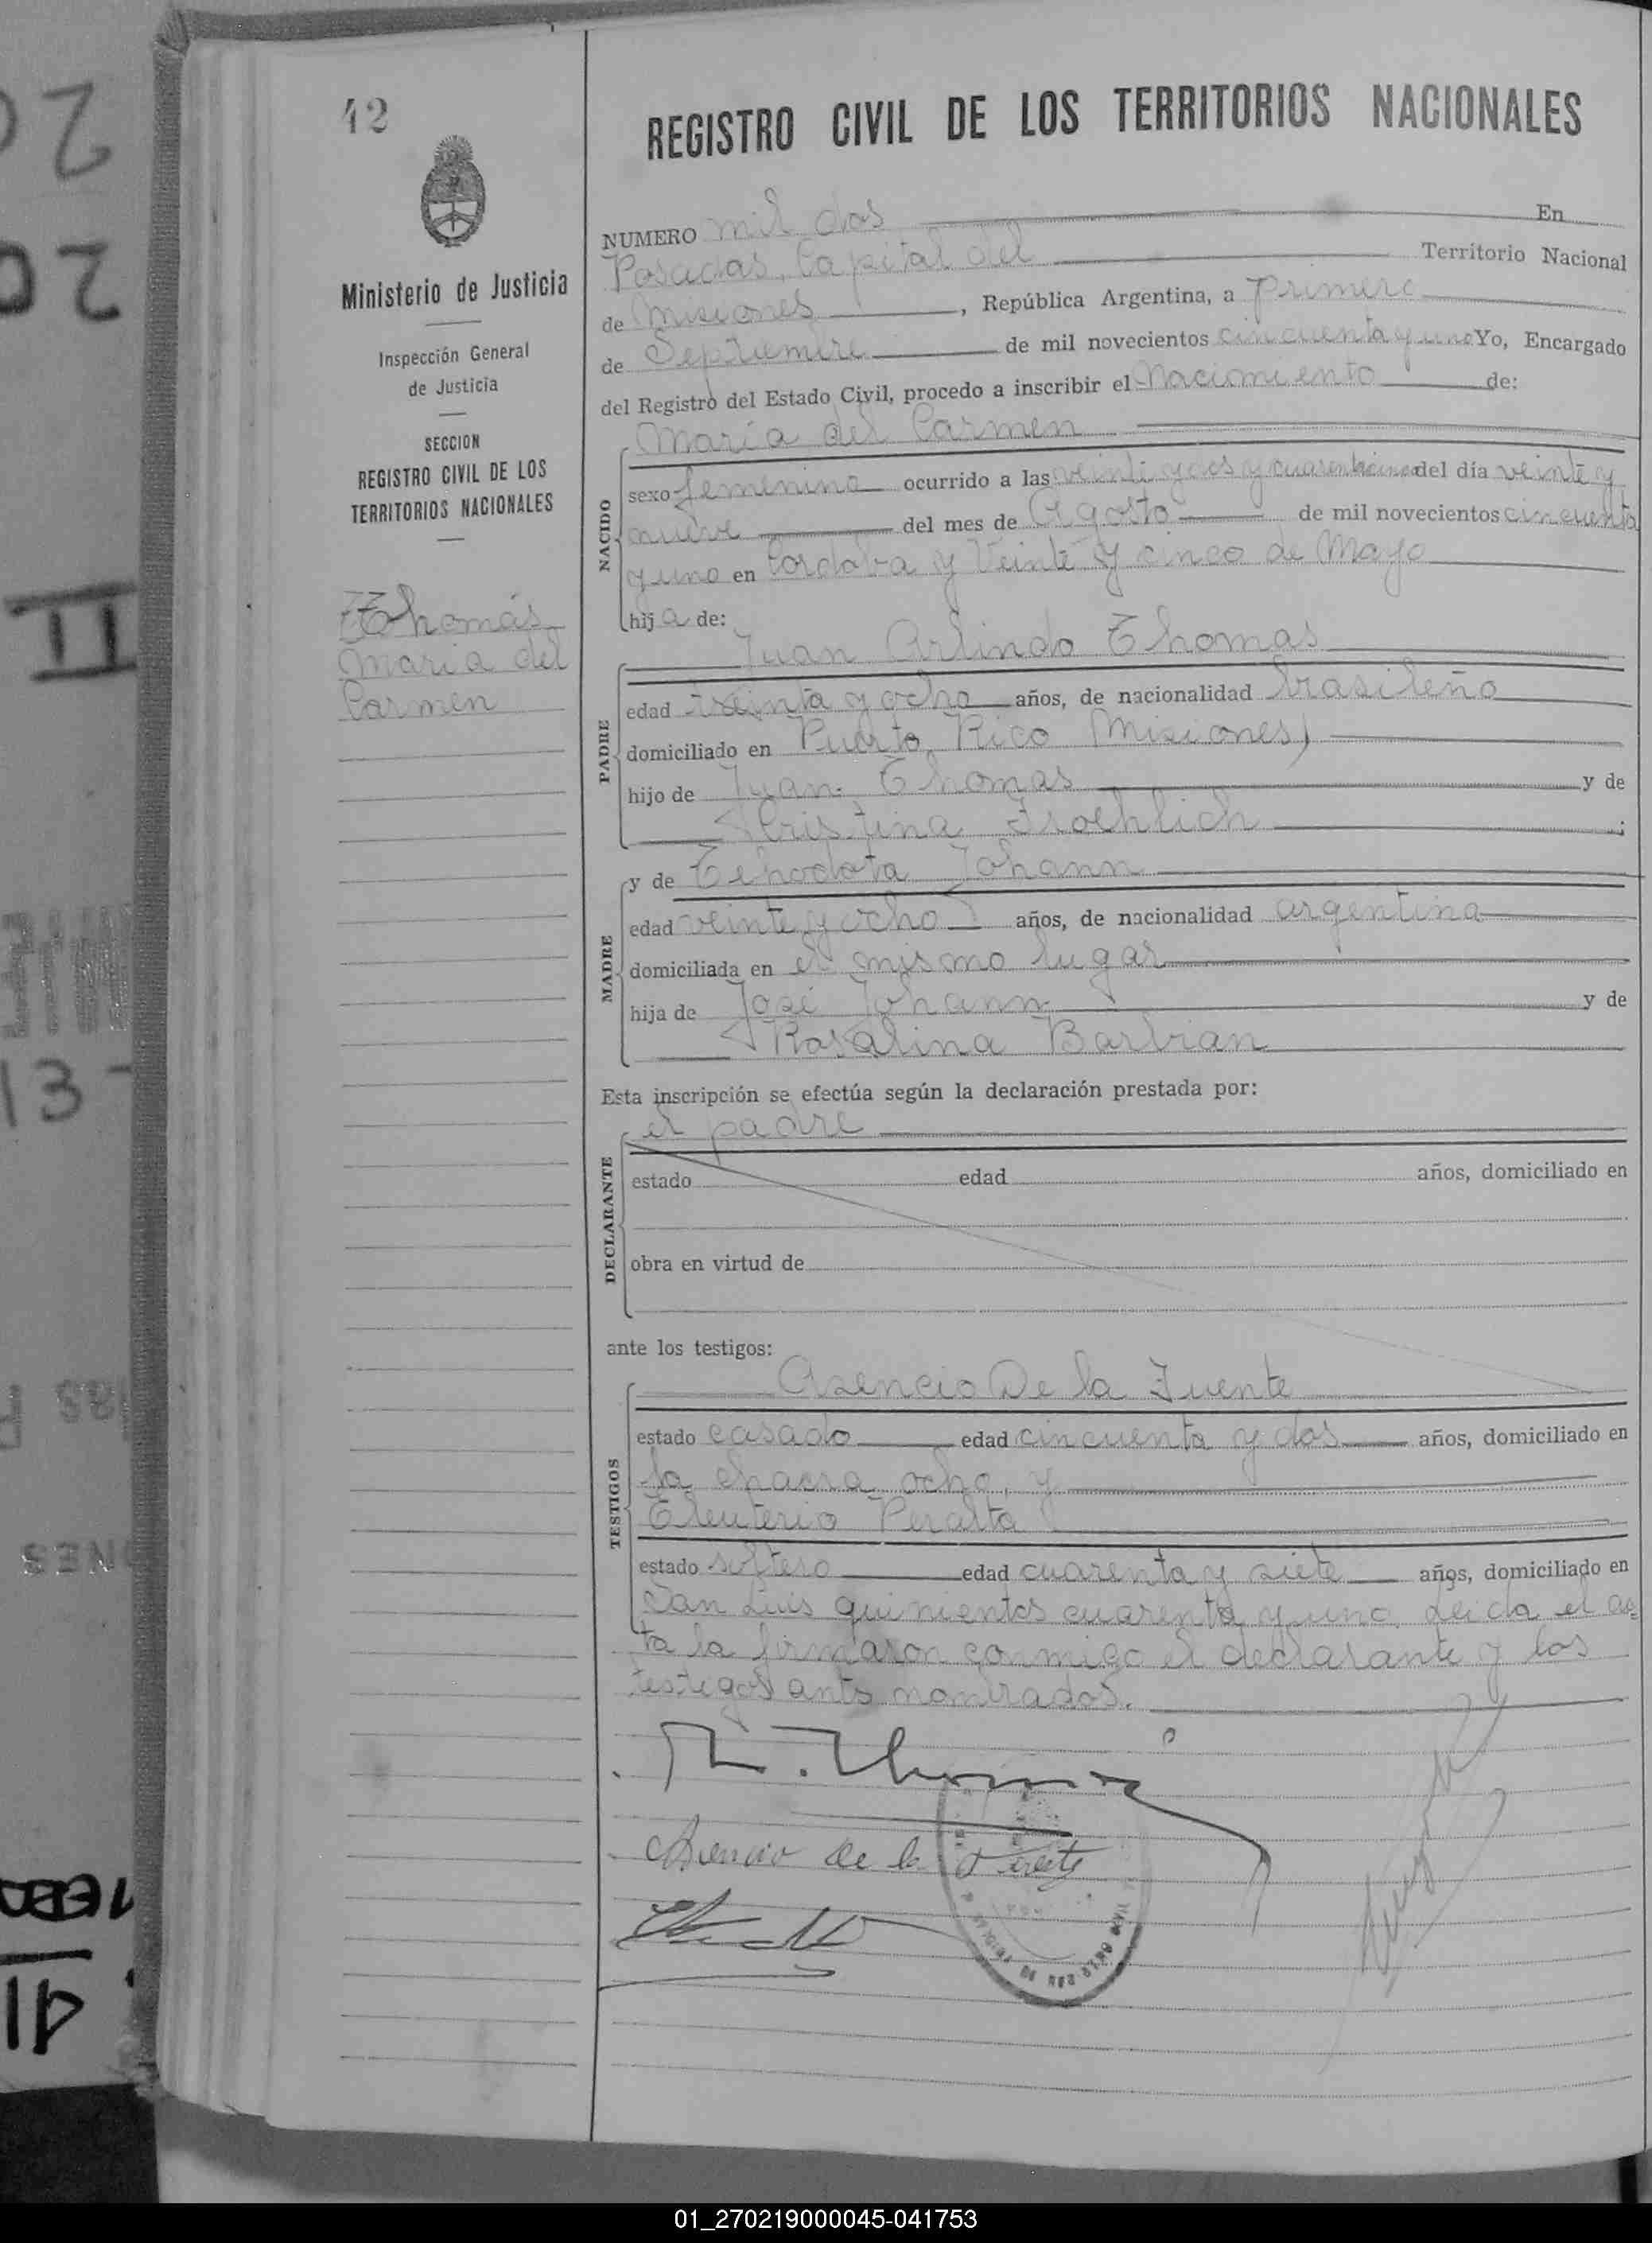 42
Ministerio de Justicia
Inspección General
de Justicia
SECCION
REGISTRO CIVIL DE LOS
TERRITORIOS NACIONALES
Thomás
Maria del
Carmen
REGISTRO CIVIL DE LOS TERRITORIOS NACIONALES
NUMERO mil dos En
Posadas, Capital del Territorio Nacional
de Misiones, República Argentina, a primero
de Septiembre de mil novecientos cincuenta y uno Yo, Encargado
del Registro del Estado Civil, procedo a inscribir el Nacimiento de:
NACIDO
María del Carmen
sexo femenino ocurrido a las veinti y dos y cuarenticinco del día veinte y
nueve del mes de Agosto de mil novecientos cincuenta
y uno en Cordoba y Veinte y cinco de Mayo
hija de:
PADRE
Juan Arlindo Thomas
edad treinta y ocho años, de nacionalidad brasileño
domiciliado en Puerto Rico (Misiones)
hijo de Juan Thomas y de
Cristina Froehlich;
MADRE
y de Tehodota Johann
edad veinte y ocho años, de nacionalidad argentina
domiciliada en el mismo lugar
hija de José Johann y de
Rosalina Barbian
Esta inscripción se efectúa según la declaración prestada por:
DECLARANTE
el padre
estado edad años, domiciliado en
obra en virtud de
ante los testigos:
TESTIGOS
Asencio De la Fuente
estado casado edad cincuenta y dos años, domiciliado en
la chacra ocho, y
Eleuterio Peralta
estado soltero edad cuarenta y siete años, domiciliado en
San Luis quinientos cuarenta y uno. Leida el ac-
ta la firmaron conmigo el declarante y los
testigos ants nombrados.
Asencio de la Fuente
01_270219000045-041753